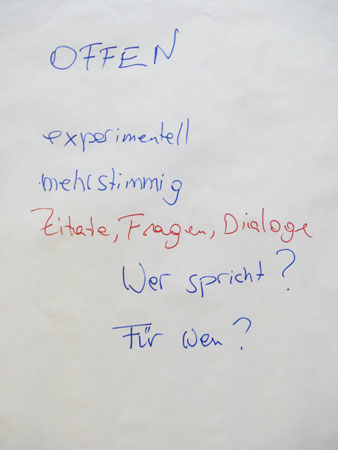 OFFEN
experimentell
mehrstimmig
Zitate, Fragen, Dialoge
Wer spricht?
Für wen?